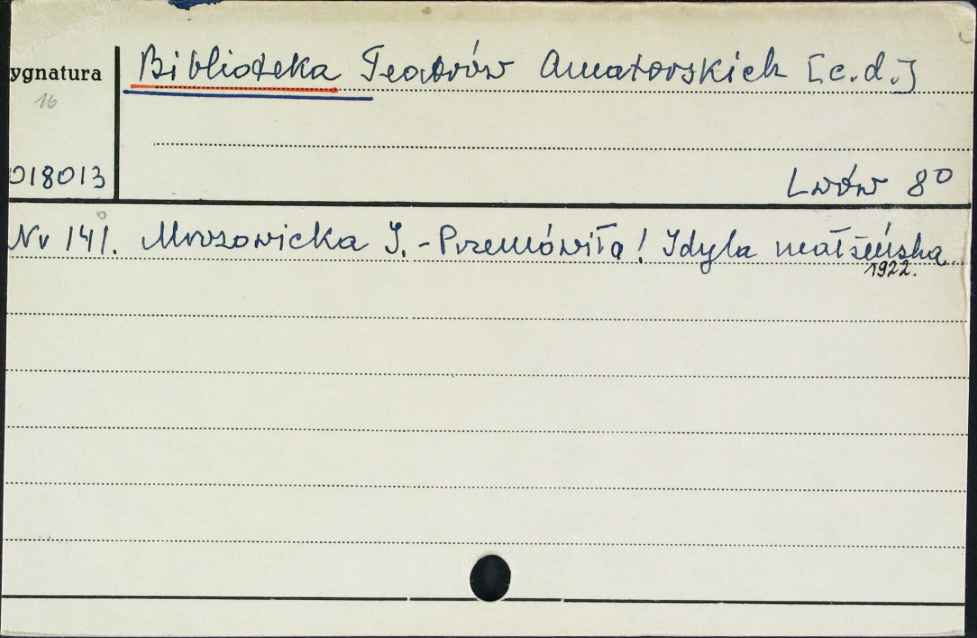 ygnatura
Biblioteka Teatrów Amatorskich [c.d.]
16
018013
Lwów 8°
Nr 141. Mrozowicka J. - Przemówiła! Idyla małżeńska
1922.